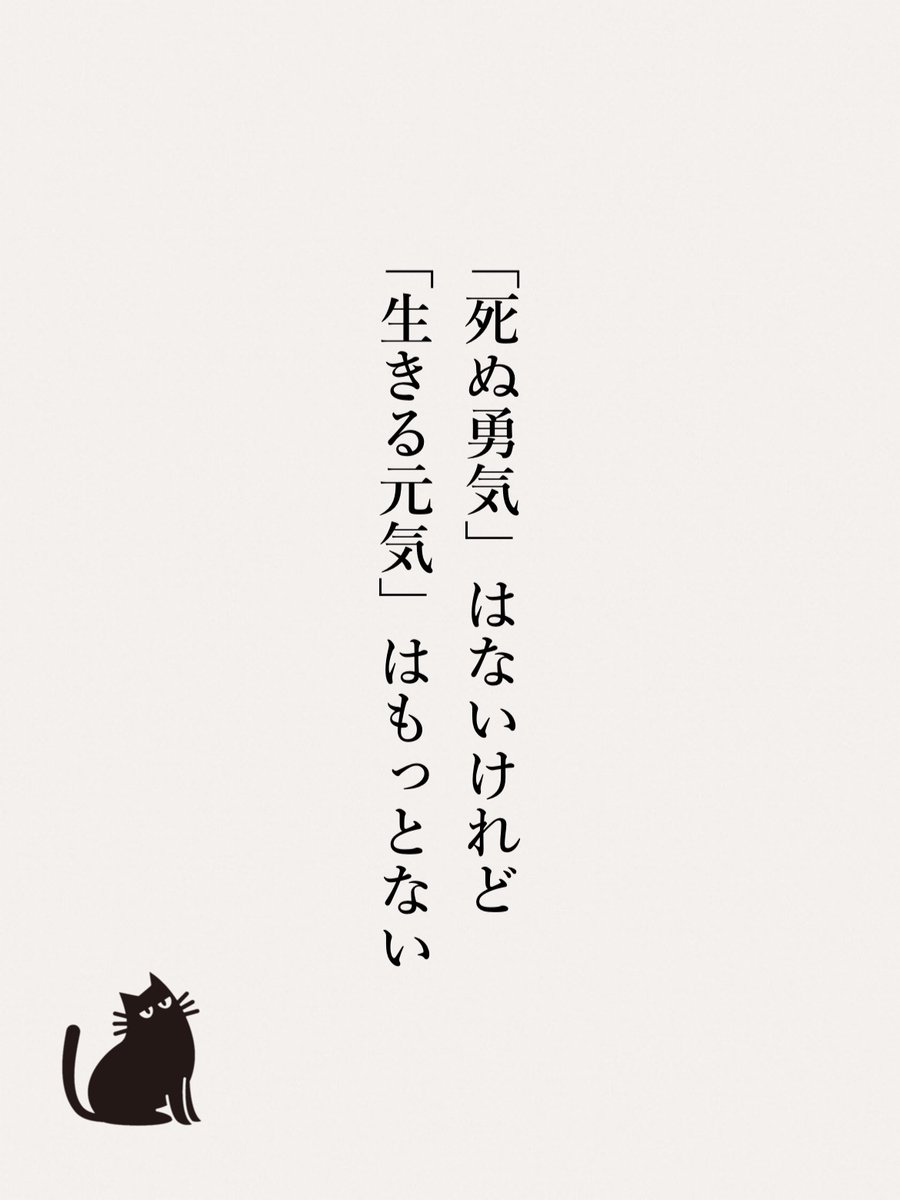 「死ぬ勇気」はないけれど
「生きる元気」はもっとない